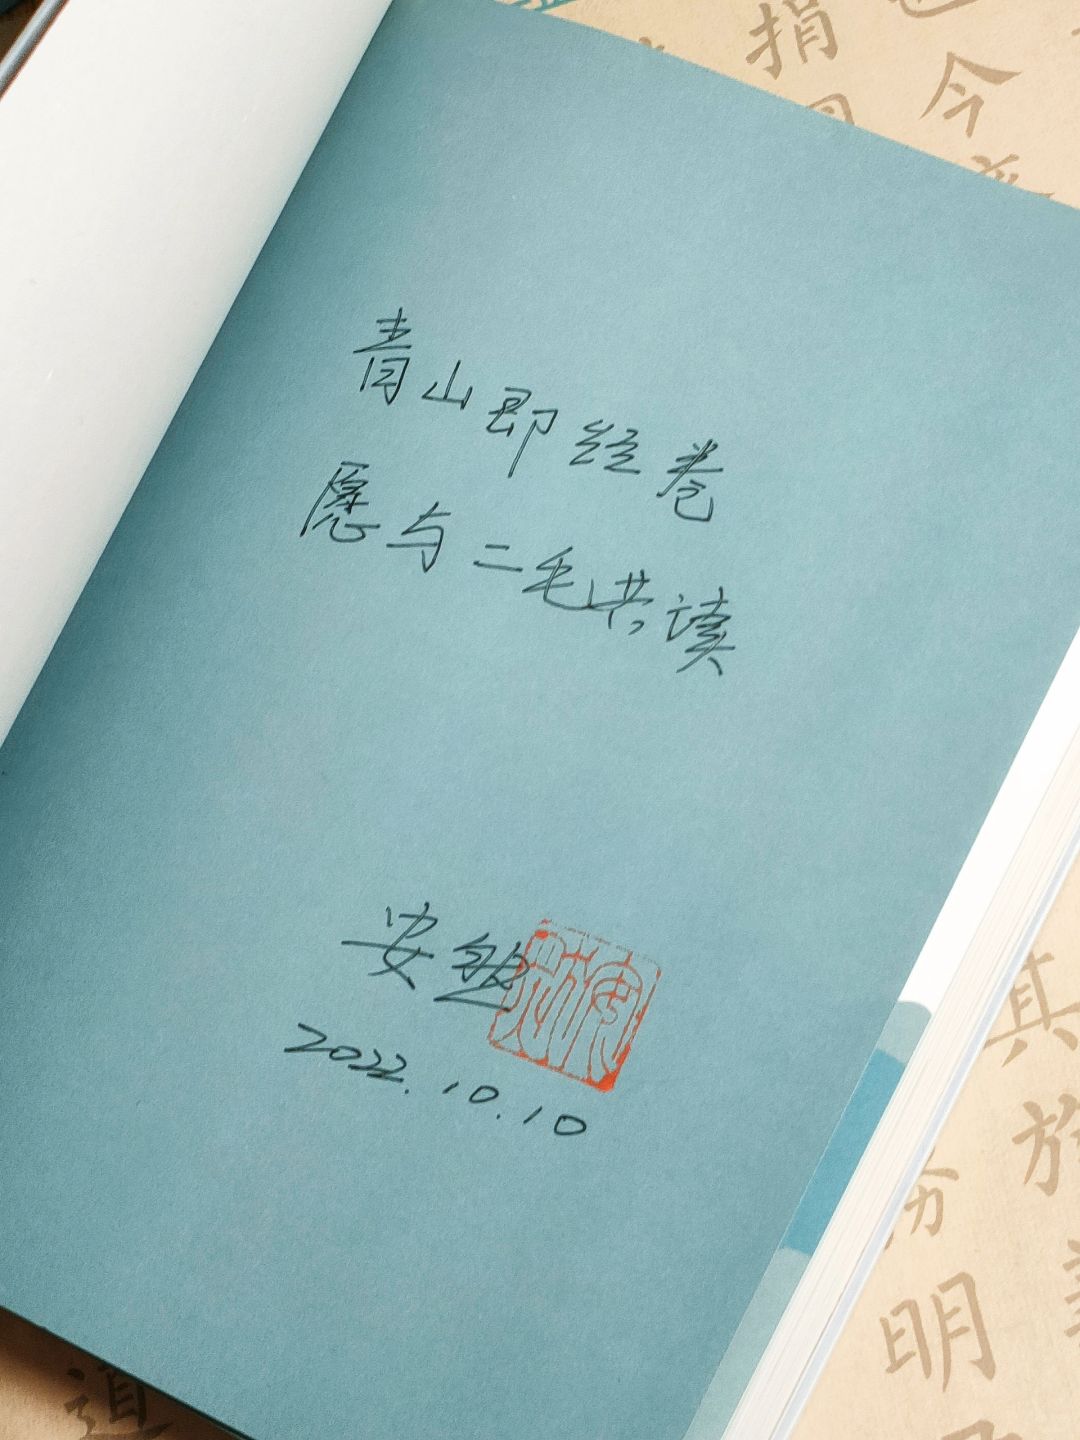 青山即经卷
愿与二毛共读
安然
2022.10.10
捐
今
真
族
分
明
道